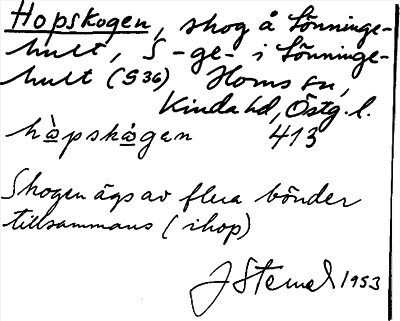 Hopskogen, skog å Lönninge-
hult, S-ge- i Lönninge-
hult (S36) Horns sn,
Kinda hd, Östg. l.
hòpskågen 413
Skogen ägs av flera bönder
tillsammans (ihop)
J Stemel 1953